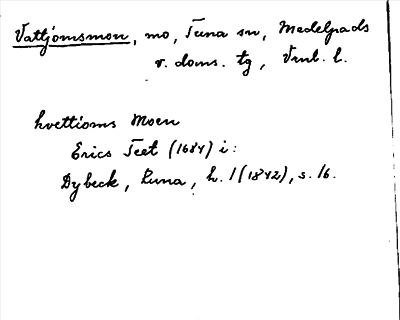 Vattjomsmon, mo, Tuna sn, Medelpads
v. doms. tg, Vrnl. l.
hvettioms Moen
Erics Teet (1684) i:
Dybeck, Runa, h. 1 (1842), s. 16.